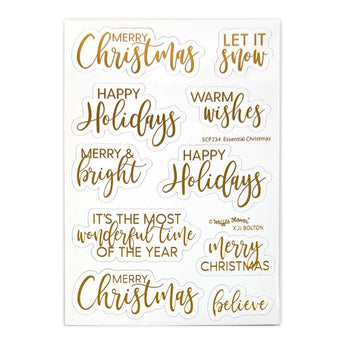 MERRY
Christmas
LET IT
snow
HAPPY
Holidays
WARM
wishes
SCP234 Essential Christmas
MERRY &
bright
HAPPY
Holidays
IT'S THE MOST
wonderful time
OF THE YEAR
©Waffle Flower
X JJ BOLTON
merry
CHRISTMAS
MERRY
Christmas
believe